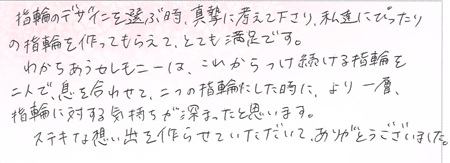 指輪のデザインを選ぶ時、真摯に考えて下さり、私達にぴったり
の指輪を作ってもらえて、とても満足です。
わかちあうセレモニーは、これからつけ続ける指輪を
二人で、息を合わせて、二つの指輪にした時に、より一層、
指輪に対する気持ちが深まったと思います。
ステキな想い出を作らせていただいて、ありがとうございました。